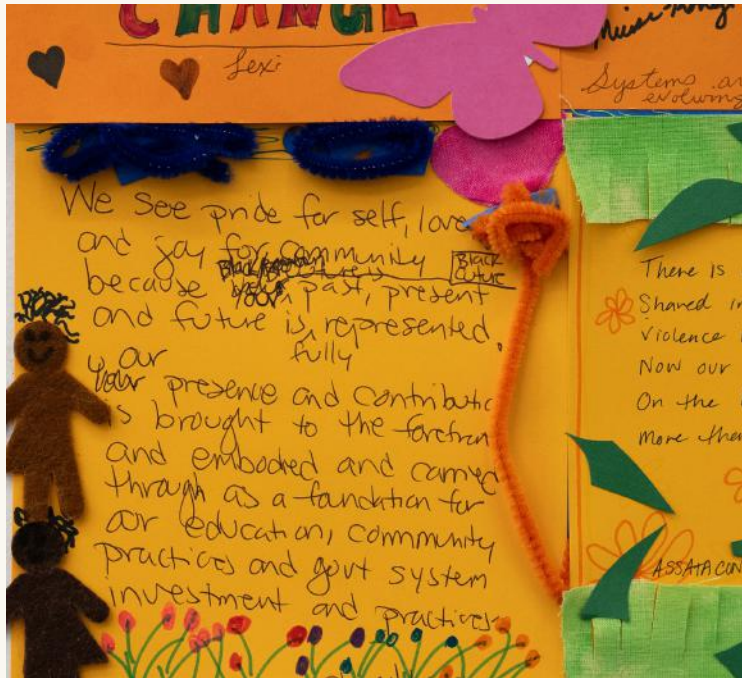 CHANGE
Lexi
Systems an
evolving
We see pride for self, love
and joy for community
Black
cuture
because past, present
and future is, represented.
fully
our
presence and contributic
is brought to the forefron
and embodied and carried
through as a foundation for
our education, community
practices and govt system
investment and practices
There is
Shared in
violence
Now our
On the
more then
ASSATA CON